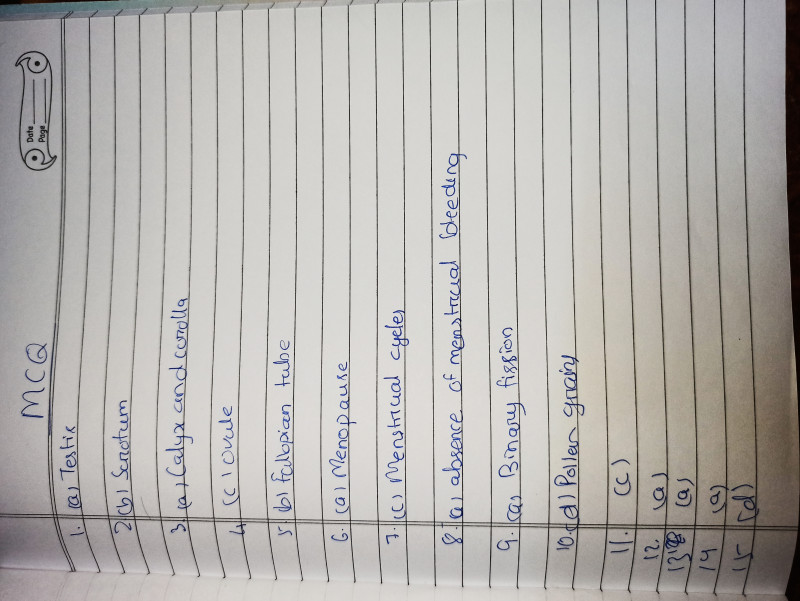 Date
Page
MCQ
1. (a) Testis
2 (b) Scrotum
3. (a) Calyx and corolla
4 (c) ovule
5. (b) fallopian tube
6. (a) Menopause
7. (c) Menstrual cycles
8 (a) absence of menstrual bleeding
9. (a) Binary fission
10. (d) Pollen grains
11. (c)
12. (a)
13 (a)
14 (a)
15 (d)